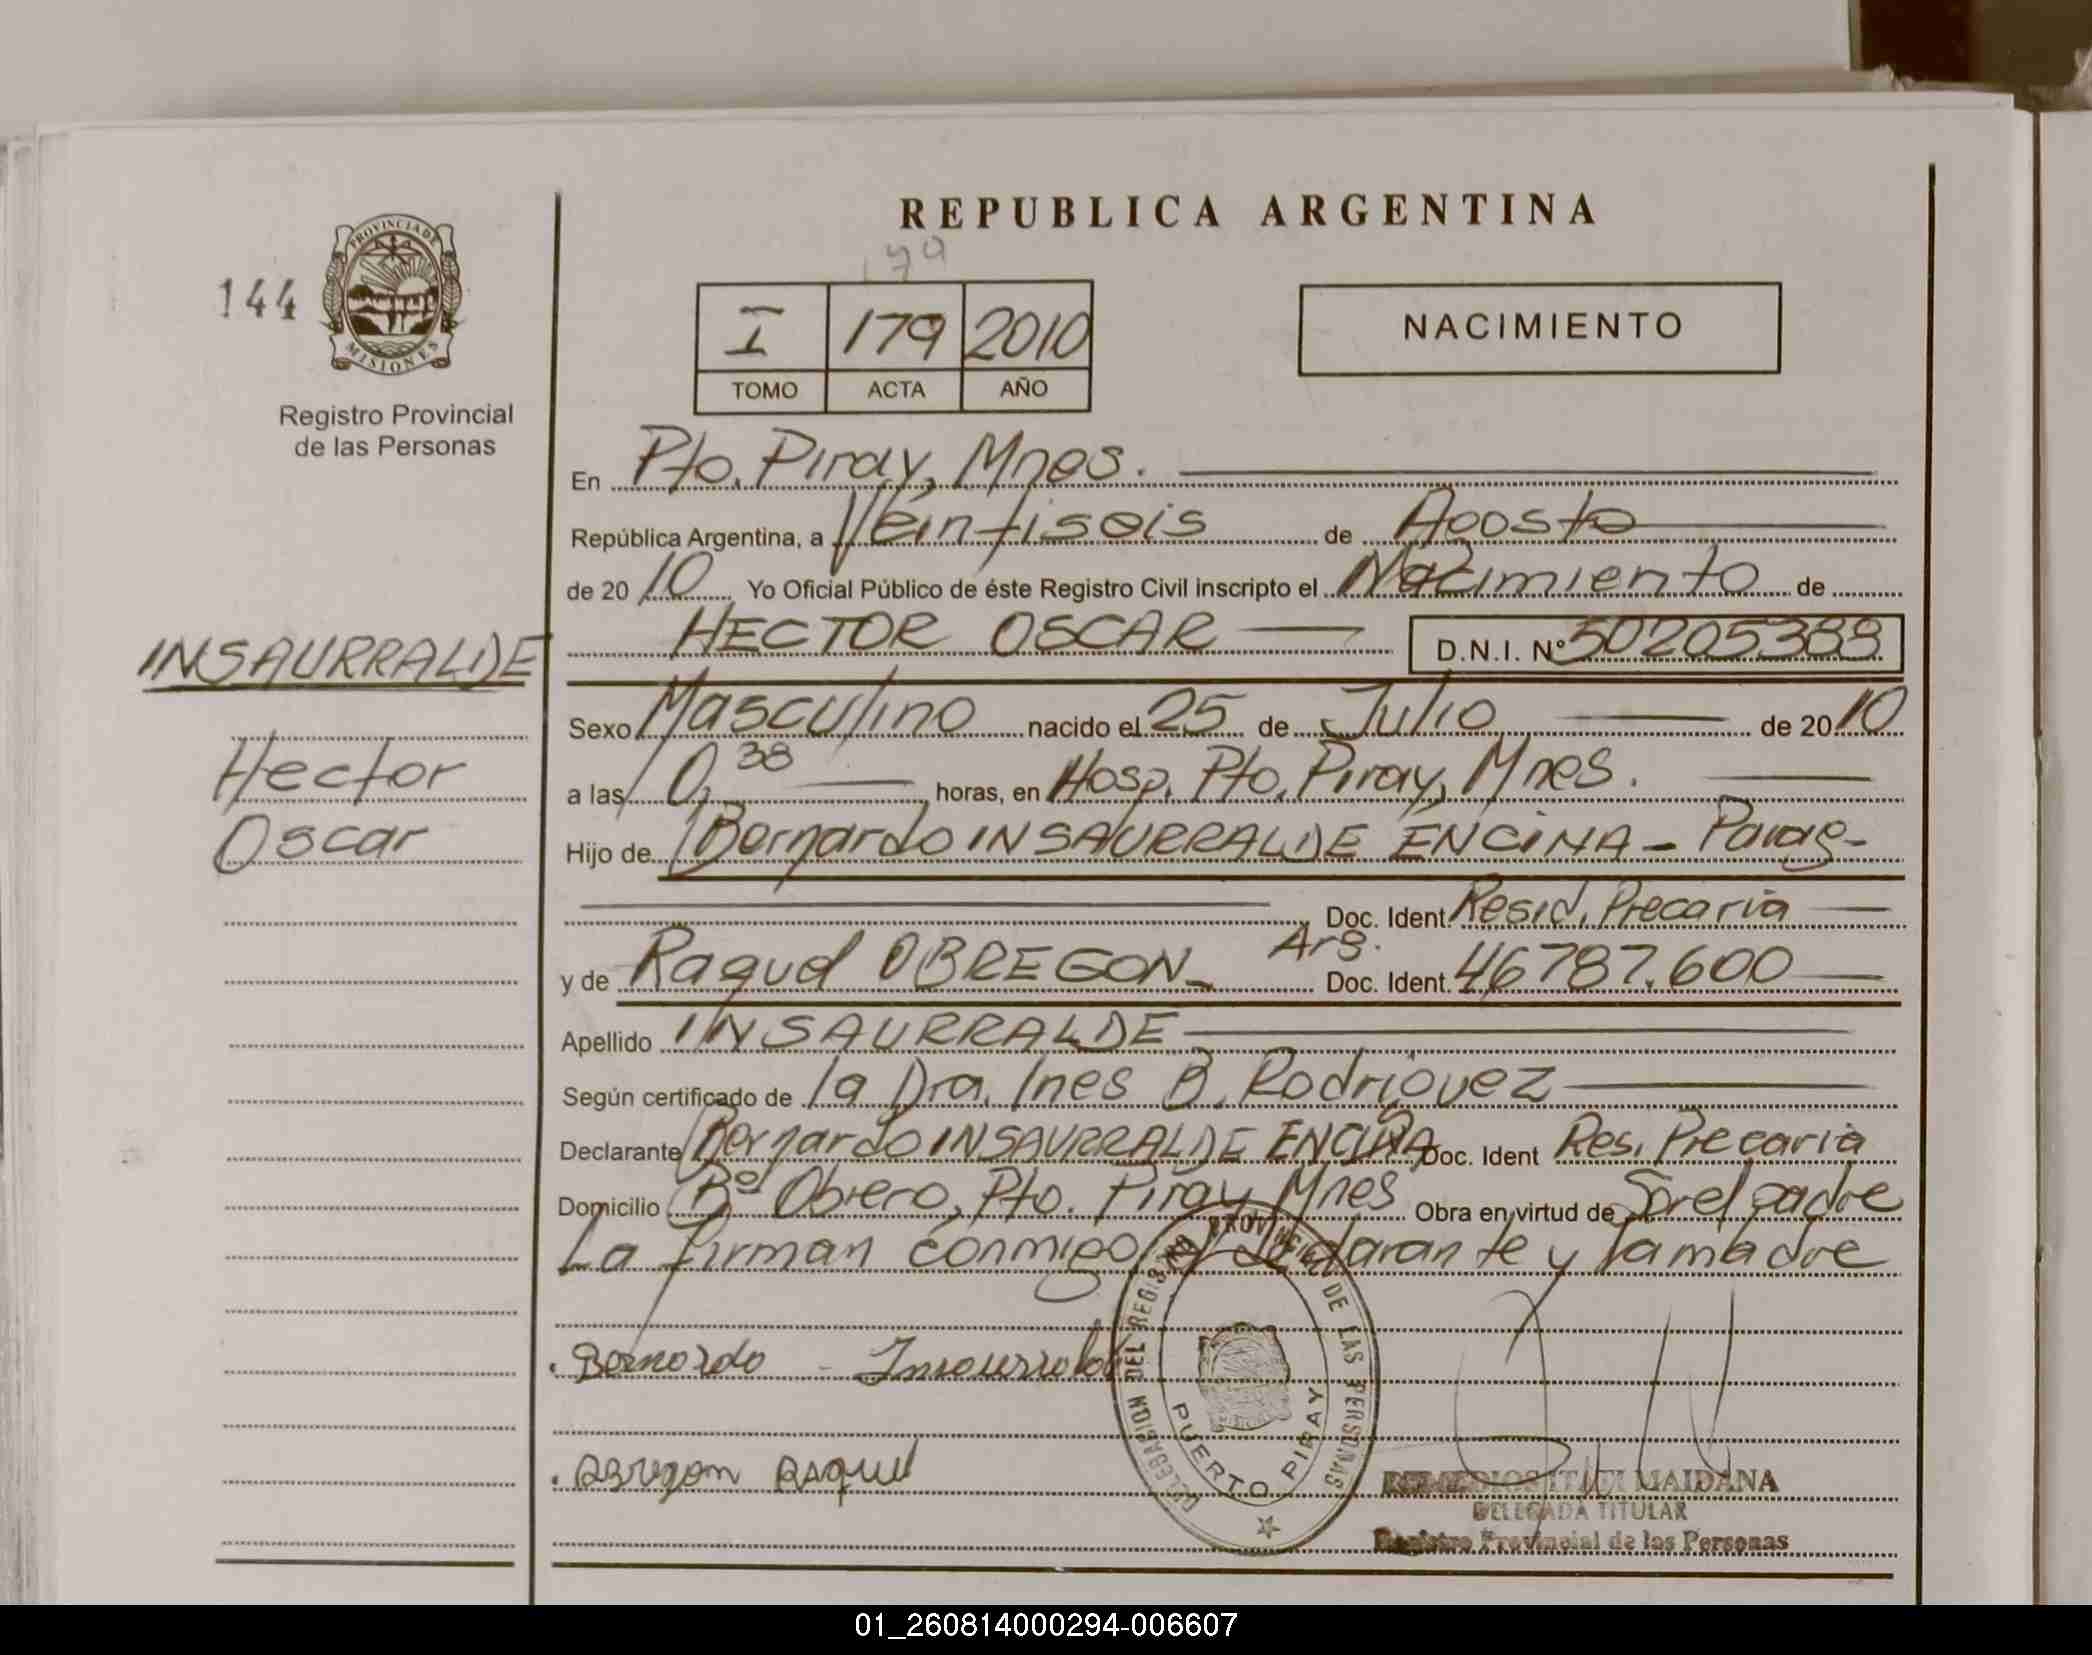 REPUBLICA ARGENTINA
179
144
PROVINCIA DE
MISIONES
Registro Provincial
de las Personas
I 179 2010
TOMO ACTA AÑO
NACIMIENTO
En Pto. Piray, Mnes.
República Argentina, a Veintiseis de Agosto
de 2010 Yo Oficial Público de éste Registro Civil inscripto el Nacimiento de
HECTOR OSCAR D.N.I. Nº 50205388
INSAURRALDE
Hector
Oscar
Sexo Masculino nacido el 25 de Julio de 2010
a las 0,38 horas, en Hosp. Pto. Piray, Mnes.
Hijo de Bernardo INSAURRALDE ENCINA - Parag-
Doc. Ident. Resid. Precaria
y de Raquel OBREGON - Arg. Doc. Ident. 46787.600
Apellido INSAURRALDE
Según certificado de la Dra. Ines B. Rodriguez
Declarante Bernardo INSAURRALDE ENCINA Doc. Ident Res. Precaria
Domicilio Bº Obrero, Pto. Piray Mnes Obra en virtud de Ser el padre
La firman conmigo el declarante y la madre
Bernardo - Insaurralde
Obregon Raquel
DELEGACION DEL REGISTRO PROVINCIAL DE LAS PERSONAS
PUERTO PIRAY
REMEDIOS ITATI MAIDANA
DELEGADA TITULAR
Registro Provincial de las Personas
01_260814000294-006607